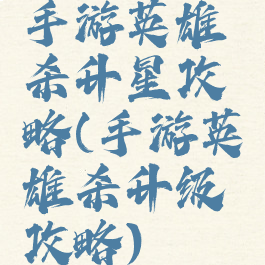 手游英雄
杀升星攻
略(手游英
雄杀升级
攻略)